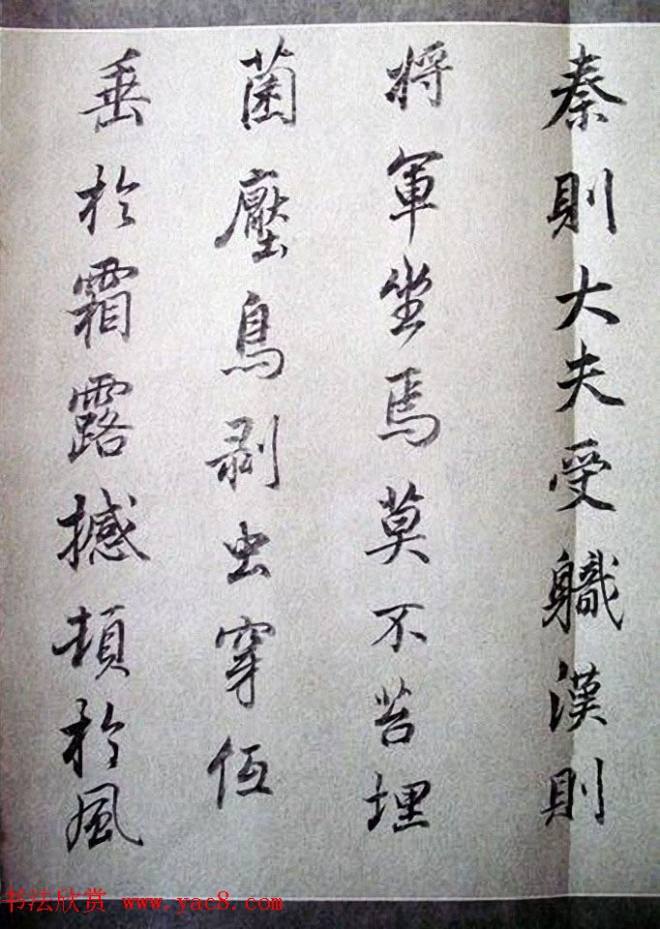 秦則大夫受軄漢則
将軍坐焉莫不苔埋
菌壓鳥剥虫穿仾
垂於霜露撼頓於風
书法欣赏 www.yac8.com